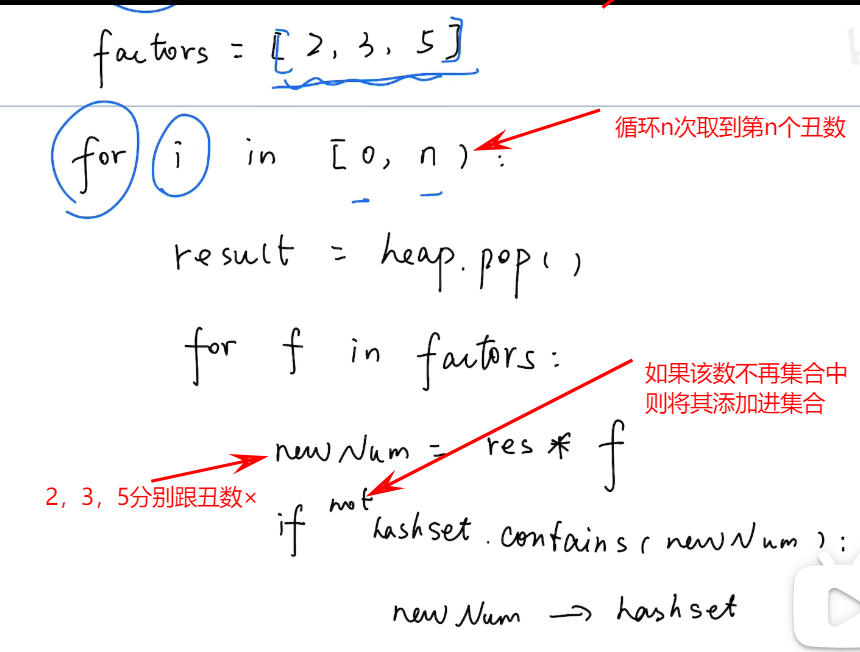 factors = [2, 3, 5]
for i in [0, n) :
循环n次取到第n个丑数
result = heap.pop()
for f in factors:
如果该数不再集合中
则将其添加进集合
newNum = res * f
2，3，5分别跟丑数×
if not hashset.contains(newNum):
newNum → hashset